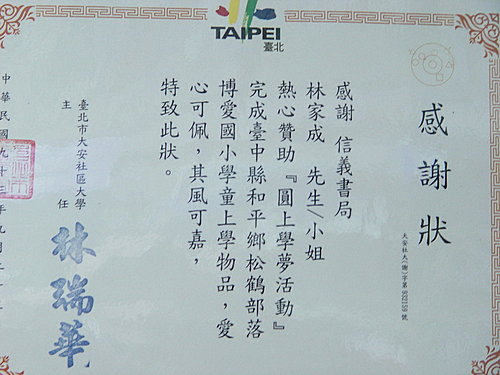 TAIPEI
臺北
感謝狀
大安社大(謝)字第932159號
感謝 信義書局
林家成 先生/小姐
熱心贊助『圓上學夢活動』
完成臺中縣和平鄉松鶴部落
博愛國小學童上學物品，愛
心可佩，其風可嘉，
特致此狀。
臺北市大安社區大學
主任
林瑞華
中華民國九十三年九月二十